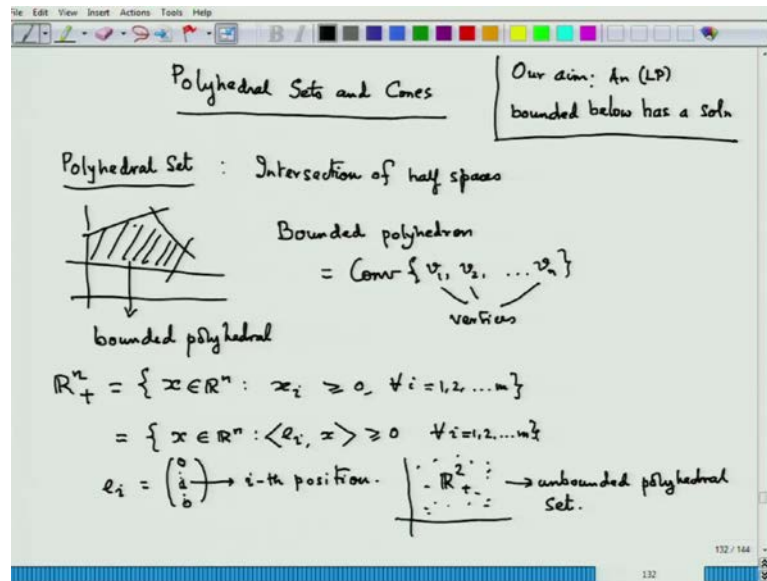 File Edit View Insert Actions Tools Help
B I
Polyhedral Sets and Cones
Our aim: An (LP)
bounded below has a soln
Polyhedral Set : Intersection of half spaces
Bounded polyhedron
= Conv { v₁, v₂, ... vₙ}
vertices
bounded polyhedral
ℝⁿ₊ = { x ∈ ℝⁿ : xᵢ ≥ 0, ∀ i = 1,2, ... m}
= { x ∈ ℝⁿ : <eᵢ, x> ≥ 0 ∀ i=1,2,...m}
eᵢ = → i-th position.
ℝ²₊ → unbounded polyhedral
set.
132 / 144
132